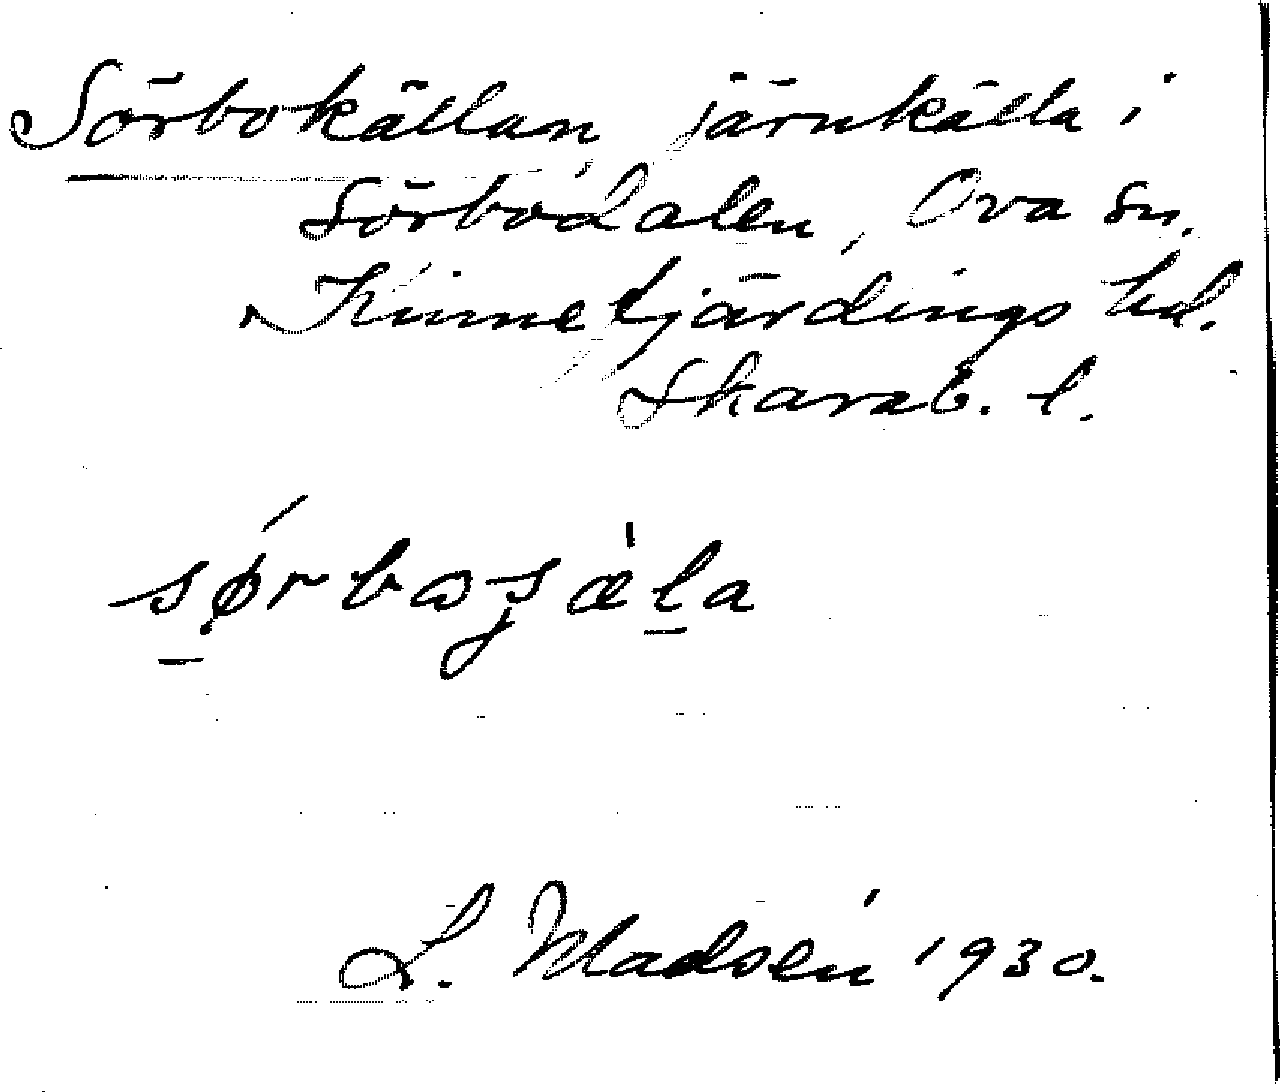 Sörbokällan, järnkälla i
Sörbodalen, Ova sn.
Kinnefjärdings hd.
Skarab. l.
L. Madsén 1930.